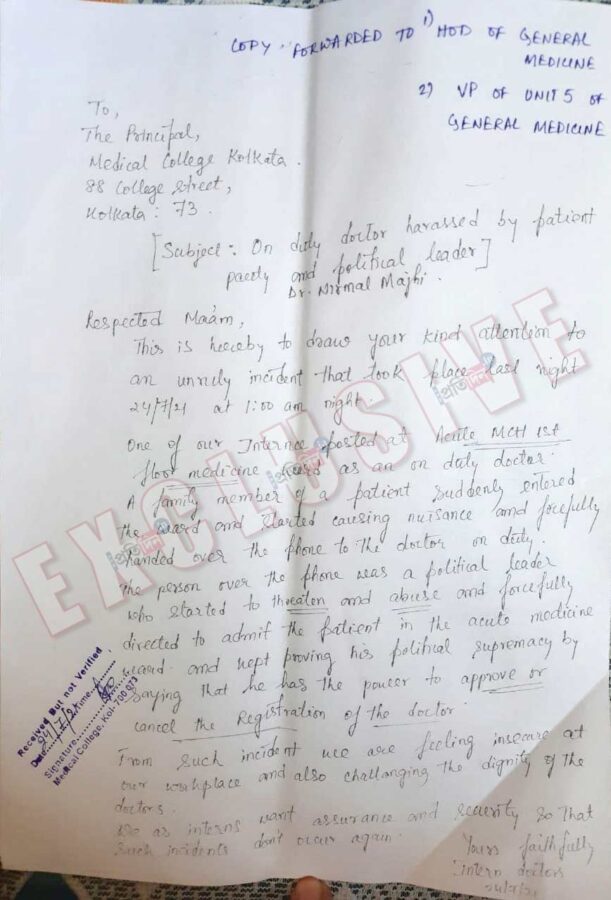 COPY. FORWARDED TO 1) HOD OF GENERAL
MEDICINE
2) VP OF UNIT 5 OF
GENERAL MEDICINE
To,
The Principal,
Medical College Kolkata.
88 College Street,
Kolkata: 73.
[Subject: On duty doctor harassed by patient
party and political leader]
Dr. Nirmal Majhi.
Respected Maa'm,
This is hereby to draw your kind attention to
an unruly incident that took place last night
24/7/21 at 1:00 am night.
One of our Internee posted at Acute MCH 1st
floor medicine ward as an on duty doctor.
A family member of a patient suddenly entered
the ward and started causing nuisance and forcefully
handed over the phone to the doctor on duty.
The person over the phone was a political leader
who started to threaten and abuse and forcefully
directed to admit the patient in the acute medicine
ward. and kept proving his political supremacy by
saying that he has the power to approve or
cancel the Registration of the doctor.
From such incident we are feeling insecure at
our workplace and also challanging the dignity of the
doctors.
We as interns want assurance and security so that
such incidents don't occur again.
Yours faithfully
Intern doctors
Received But not Verified
Date 24/7/21 Time
Signature
Medical College, Kol-700 073
EXCLUSIVE
প্রতিদিন
প্রতিদিন
প্রতিদিন